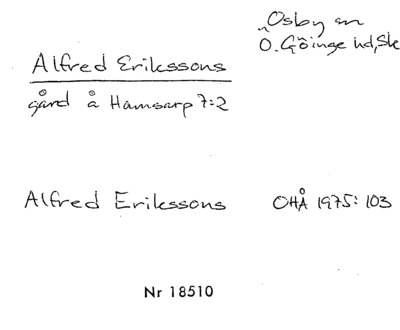 Osby sn
Ö. Göinge hd, Sk
Alfred Erikssons
gård å Hamsarp 7:2
Alfred Erikssons OHÅ 1975:103
Nr 18510